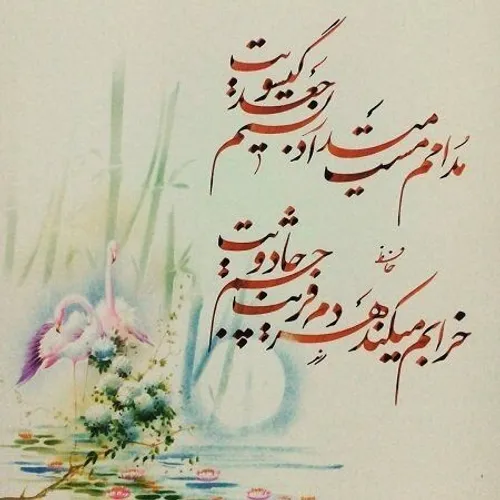 مُدامم مست میدارد نسیم جَعد گیسویت
خرابم میکند هر دم فریب چشم جادویت
حافظ